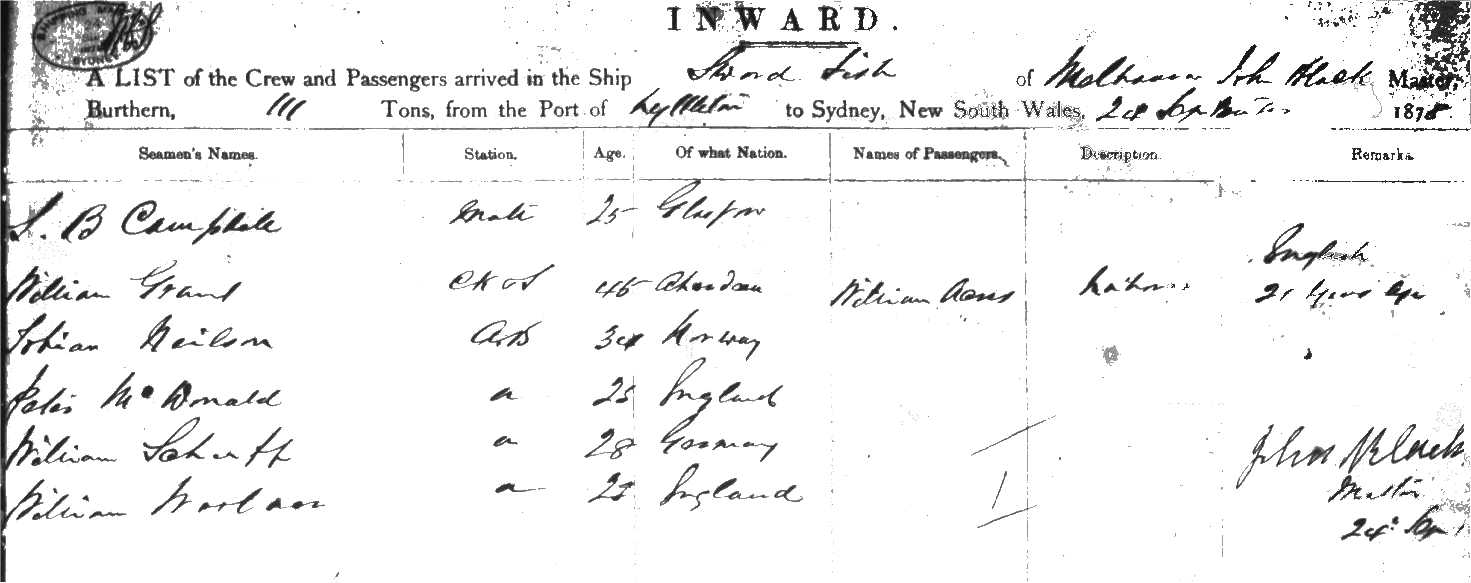 INWARD.
A LIST of the Crew and Passengers arrived in the Ship Sword Fish of Melbourne John Black Master,
Burthern, 111 Tons, from the Port of Lyttelton to Sydney, New South Wales, 24 September 1878.
Seamen's Names. Station. Age. Of what Nation. Names of Passengers. Description. Remarks.
S. B Campbell Mate 25 Glasgow
English
William Grant CK & S 45 Aberdeen William 21 years age
Tobias Neilson AB 34 Norway
Peter McDonald a 25 England
William Scharff a 28 Germany
William a England
1
John Black
Master
24 Sep